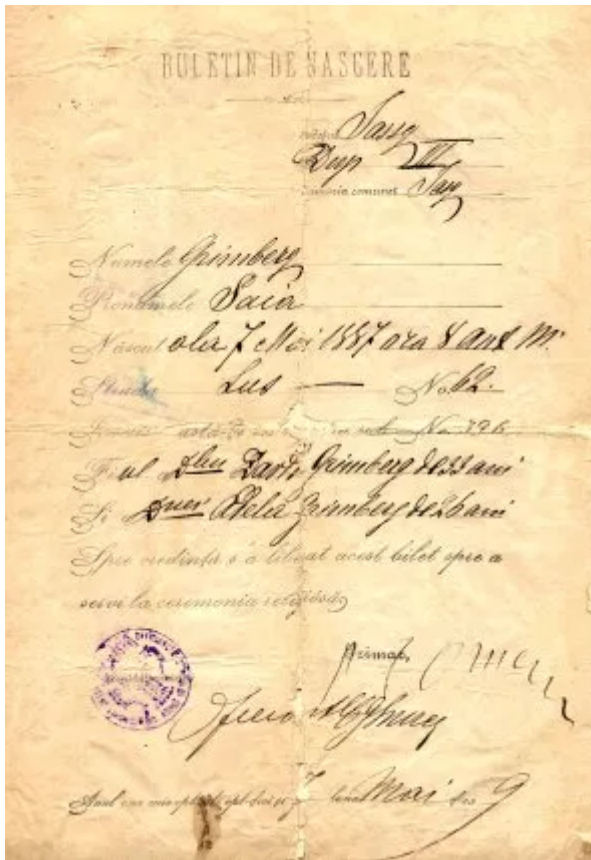 BULETIN DE NASCERE
Jassy
Desp III
Primăria comunei Jassy
Numele Grimberg
Pronumele Saia
Născut la 7 Mai 1887 ora 8 ant. M.
Strada Lus — No. 62.
No 796
Fiul Dlui David Grimberg de 33 ani
Și Dnei Adela Grimberg de 26 ani
Spre credința s'a liberat acest bilet spre a
servi la ceremonia religiósă
Primar,
Anul una mie opt sute opt-deci și 7 luna Mai dio 9